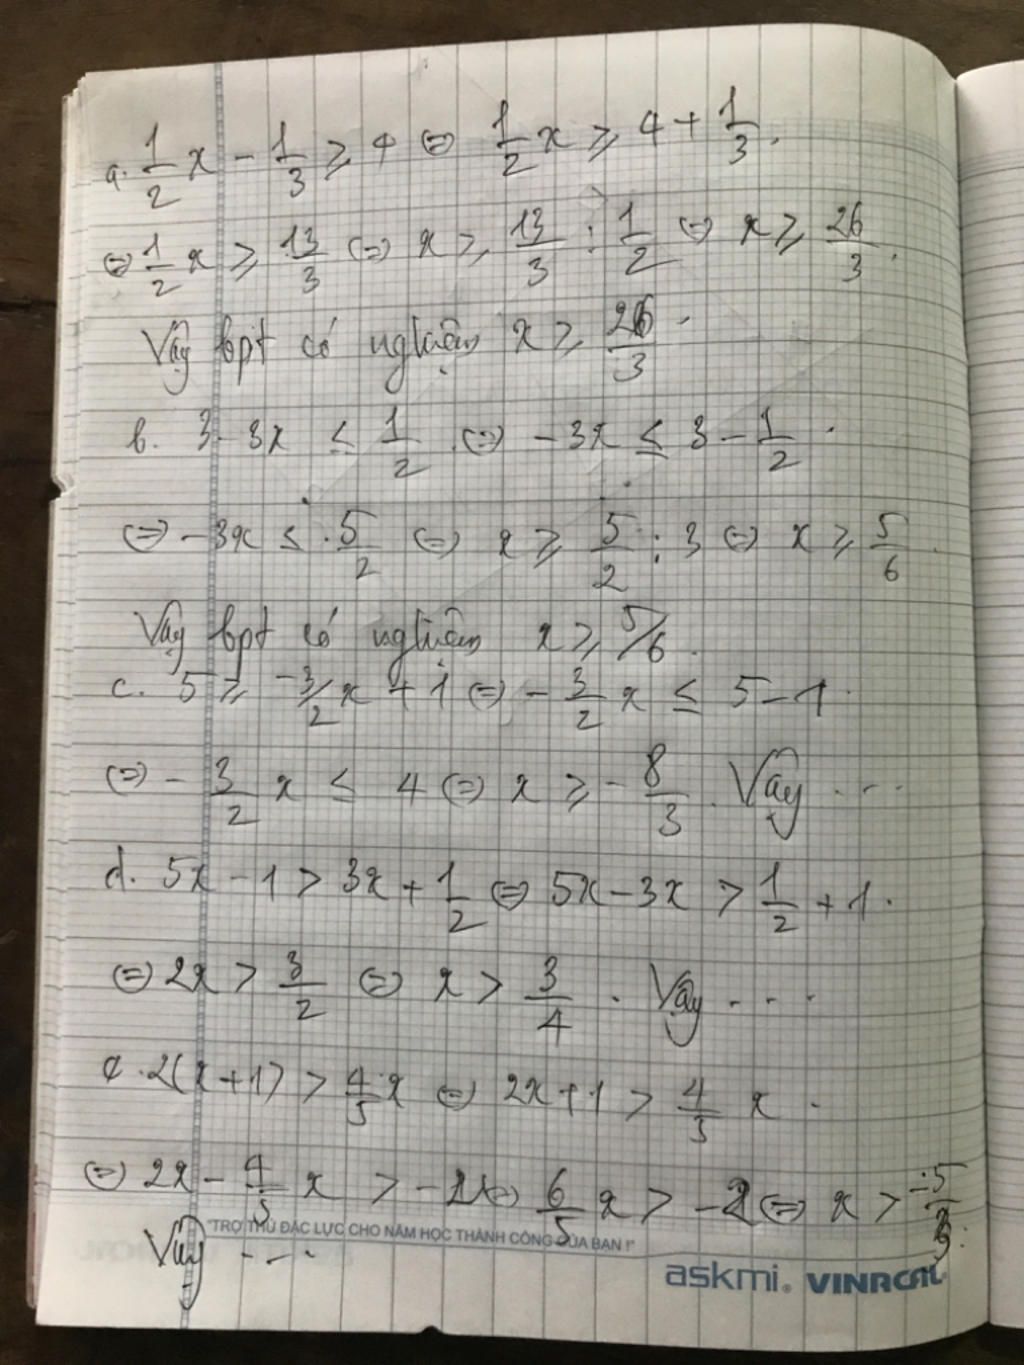 a. 1/2 x - 1/3 ≥ 4 ⇔ 1/2 x ≥ 4 + 1/3.
⇔ 1/2 x ≥ 13/3 ⇔ x ≥ 13/3 : 1/2 ⇔ x ≥ 26/3.
Vậy bpt có nghiệm x ≥ 26/3.
b. 3 - 3x ≤ 1/2 ⇔ -3x ≤ 3 - 1/2.
⇔ -3x ≤ 5/2 ⇔ x ≥ 5/2 : 3 ⇔ x ≥ 5/6.
Vậy bpt có nghiệm x ≥ 5/6.
c. 5 ≥ -3/2 x + 1 ⇔ -3/2 x ≤ 5 - 1.
⇔ -3/2 x ≤ 4 ⇔ x ≥ -8/3. Vậy ...
d. 5x - 1 > 3x + 1/2 ⇔ 5x - 3x > 1/2 + 1.
⇔ 2x > 3/2 ⇔ x > 3/4. Vậy ...
e. 2(x + 1) > 4/5 x ⇔ 2x + 1 > 4/5 x.
⇔ 2x - 4/5 x > -2 ⇔ 6/5 x > -2 ⇔ x > -5/3.
Vậy ...
"TRỢ THỦ ĐẮC LỰC CHO NĂM HỌC THÀNH CÔNG CỦA BẠN !"
askmi® VINACAL